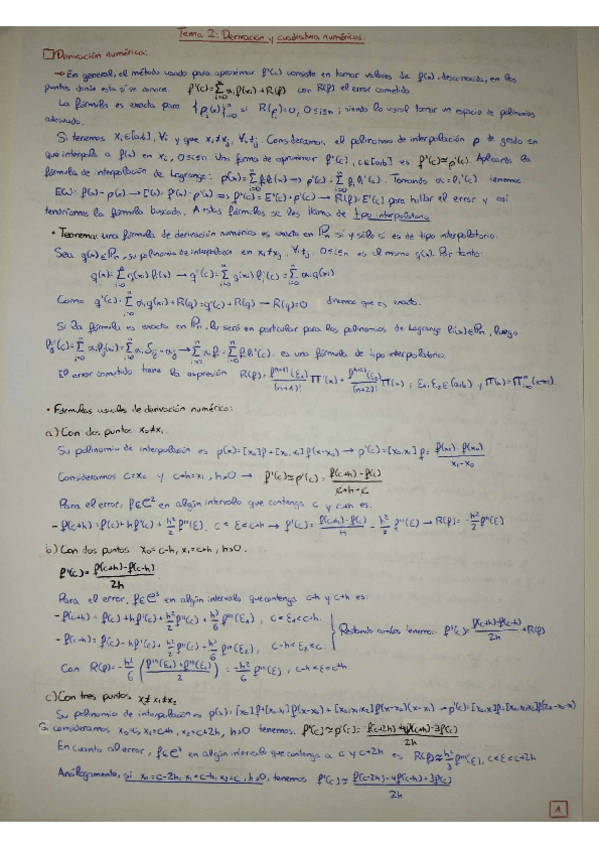 Tema 2: Derivación y cuadratura numéricas.
Derivación numérica:
→ En general, el método usado para aproximar f'(c) consiste en tomar valores de f(x), desconocida, en los
puntos donde esta sí se conoce. f'(c)=∑ αi f(xi)+R(f) con R(f) el error cometido.
La fórmula es exacta para si R(pi)=0, 0≤i≤n; siendo lo usual tomar un espacio de polinomios
adecuado.
Si tenemos xi∈[a,b], ∀i y que xi≠xj, ∀i≠j. Consideramos el polinomio de interpolación p de grado ≤n
que interpola a f(x) en xi, 0≤i≤n. Una forma de aproximar f'(c), c∈[a,b] es f'(c)≃p'(c). Aplicando la
fórmula de interpolación de Lagrange: p(x)=∑ fi li(x) → p'(c)=∑ fi li'(c). Tomando αi=li'(c) tenemos
E(x)=f(x)-p(x) → E'(x)=f'(x)-p'(x) ⇒ f'(c)=E'(c)+p'(c) → R(f)=E'(c) para hallar el error y así
tendríamos la fórmula buscada. A estas fórmulas se les llama de tipo interpolatorio
• Teorema: una fórmula de derivación numérica es exacta en Pn si y sólo si es de tipo interpolatorio.
Sea q(x)∈Pn, su polinomio de interpolación en xi≠xj, ∀i≠j, 0≤i≤n es el mismo q(x). Por tanto:
q(x)=∑ q(xi) li(x) → q'(c)=∑ q(xi) li'(c)=∑ αi q(xi)
Como q'(c)=∑ αi q(xi)+R(q)=q'(c)+R(q) → R(q)=0 diremos que es exacta.
Si la fórmula es exacta en Pn, lo será en particular para los polinomios de Lagrange li(x)∈Pn, luego
lj'(c)=∑ αi lj(xi)=∑ αi δij=αj → ∑ αi fi=∑ fi li'(c). es una fórmula de tipo interpolatorio.
El error cometido tiene la expresión
• Fórmulas usuales de derivación numérica:
a) Con dos puntos x0≠x1
Su polinomio de interpolación es p(x)=[x0]f+[x0,x1]f(x-x0) → p'(c)=[x0,x1]f=(f(x1)-f(x0))/(x1-x0)
Consideramos c=x0 y c+h=x1, h≠0 → f'(c)≃p'(c)=(f(c+h)-f(c))/(c+h-c)
Para el error, f∈C² en algún intervalo que contenga c y c+h es:
-f(c+h)=f(c)+hf'(c)+h²/2 f''(ξ), c<ξ<c+h → f'(c)=(f(c+h)-f(c))/h - h/2 f''(ξ) → R(f)=-h/2 f''(ξ)
b) Con dos puntos x0=c-h, x1=c+h, h>0.
f'(c)≃(f(c+h)-f(c-h))/2h
Para el error, f∈C³ en algún intervalo que contenga c-h y c+h es:
-f(c+h)=f(c)+hf'(c)+h²/2 f''(c)+h³/6 f'''(ξ1), c<ξ1<c+h.
-f(c-h)=f(c)-hf'(c)+h²/2 f''(c)-h³/6 f'''(ξ2), c-h<ξ2<c.
Restando ambas tenemos: f'(c)=(f(c+h)-f(c-h))/2h+R(f)
Con R(f)=-h²/6 ((f'''(ξ1)+f'''(ξ2))/2)=-h²/6 f'''(ξ), c-h<ξ<c+h
c) Con tres puntos x0≠x1≠x2
Su polinomio de interpolación es p(x)=[x0]f+[x0,x1]f(x-x0)+[x0,x1,x2]f(x-x0)(x-x1)
Si consideramos x0=c, x1=c+h, x2=c+2h, h>0 tenemos:
En cuanto al error, f∈C³ en algún intervalo que contenga a c y c+2h es R(f)=h²/3 f'''(ξ), c<ξ<c+2h
Análogamente, si x0=c-2h, x1=c-h, x2=c, h>0, tenemos f'(c)≃(f(c-2h)-4f(c-h)+3f(c))/2h
1